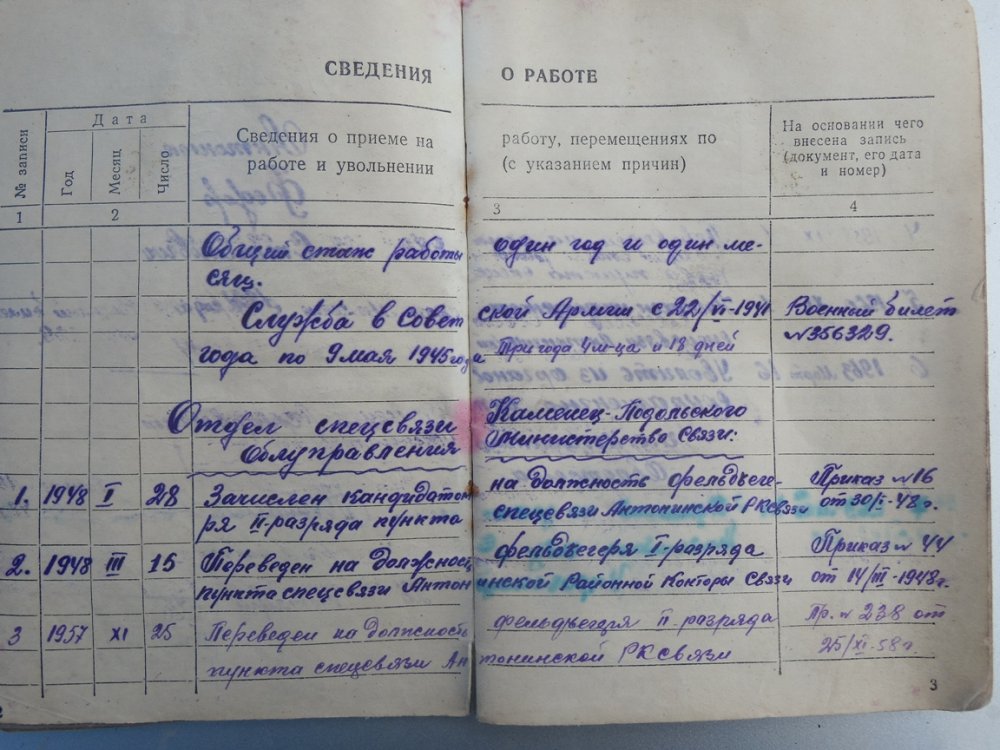 СВЕДЕНИЯ О РАБОТЕ
№ записи
Дата
Год
Месяц
Число
Сведения о приеме на работу, перемещениях по
работе и увольнении (с указанием причин)
На основании чего
внесена запись
(документ, его дата
и номер)
1 2 3 4
Общий стаж работы один год и один ме-
сяц.
Служба в Советской Армии с 22/VI-1941 Военный билет
года по 9 мая 1945 года Три года 4 м-ца и 18 дней №356329.
Отдел спецсвязи Каменец-Подольского
Облуправления Министерство Связи:
1. 1948 I 28 Зачислен кандидатом на должность фельдъеге- Приказ №16
ря II-разряда пункта спецсвязи Антонинской РКсвязи от 30/I-48г.
2. 1948 III 15 Переведен на должность фельдъегеря I-разряда Приказ № 44
пункта спецсвязи Антонинской Районной Конторы Связи от 14/III-1948г.
3 1957 XI 25 Переведен на должность фельдъегеря II-разряда Пр. № 238 от
пункта спецсвязи Антонинской РКсвязи 25/XI-58г.
3